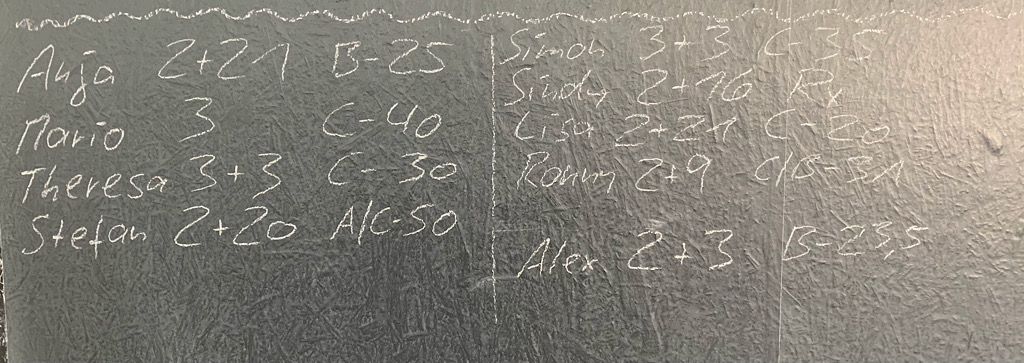 Anja 2+21 B-25
Mario 3 C-40
Theresa 3+3 C-30
Stefan 2+20 A/C-50
Simon 3+3 C-35
Sindy 2+16 Rx
Lisa 2+21 C-20
Ronny 2+9 C/B-31
Alex 2+3 B-23,5